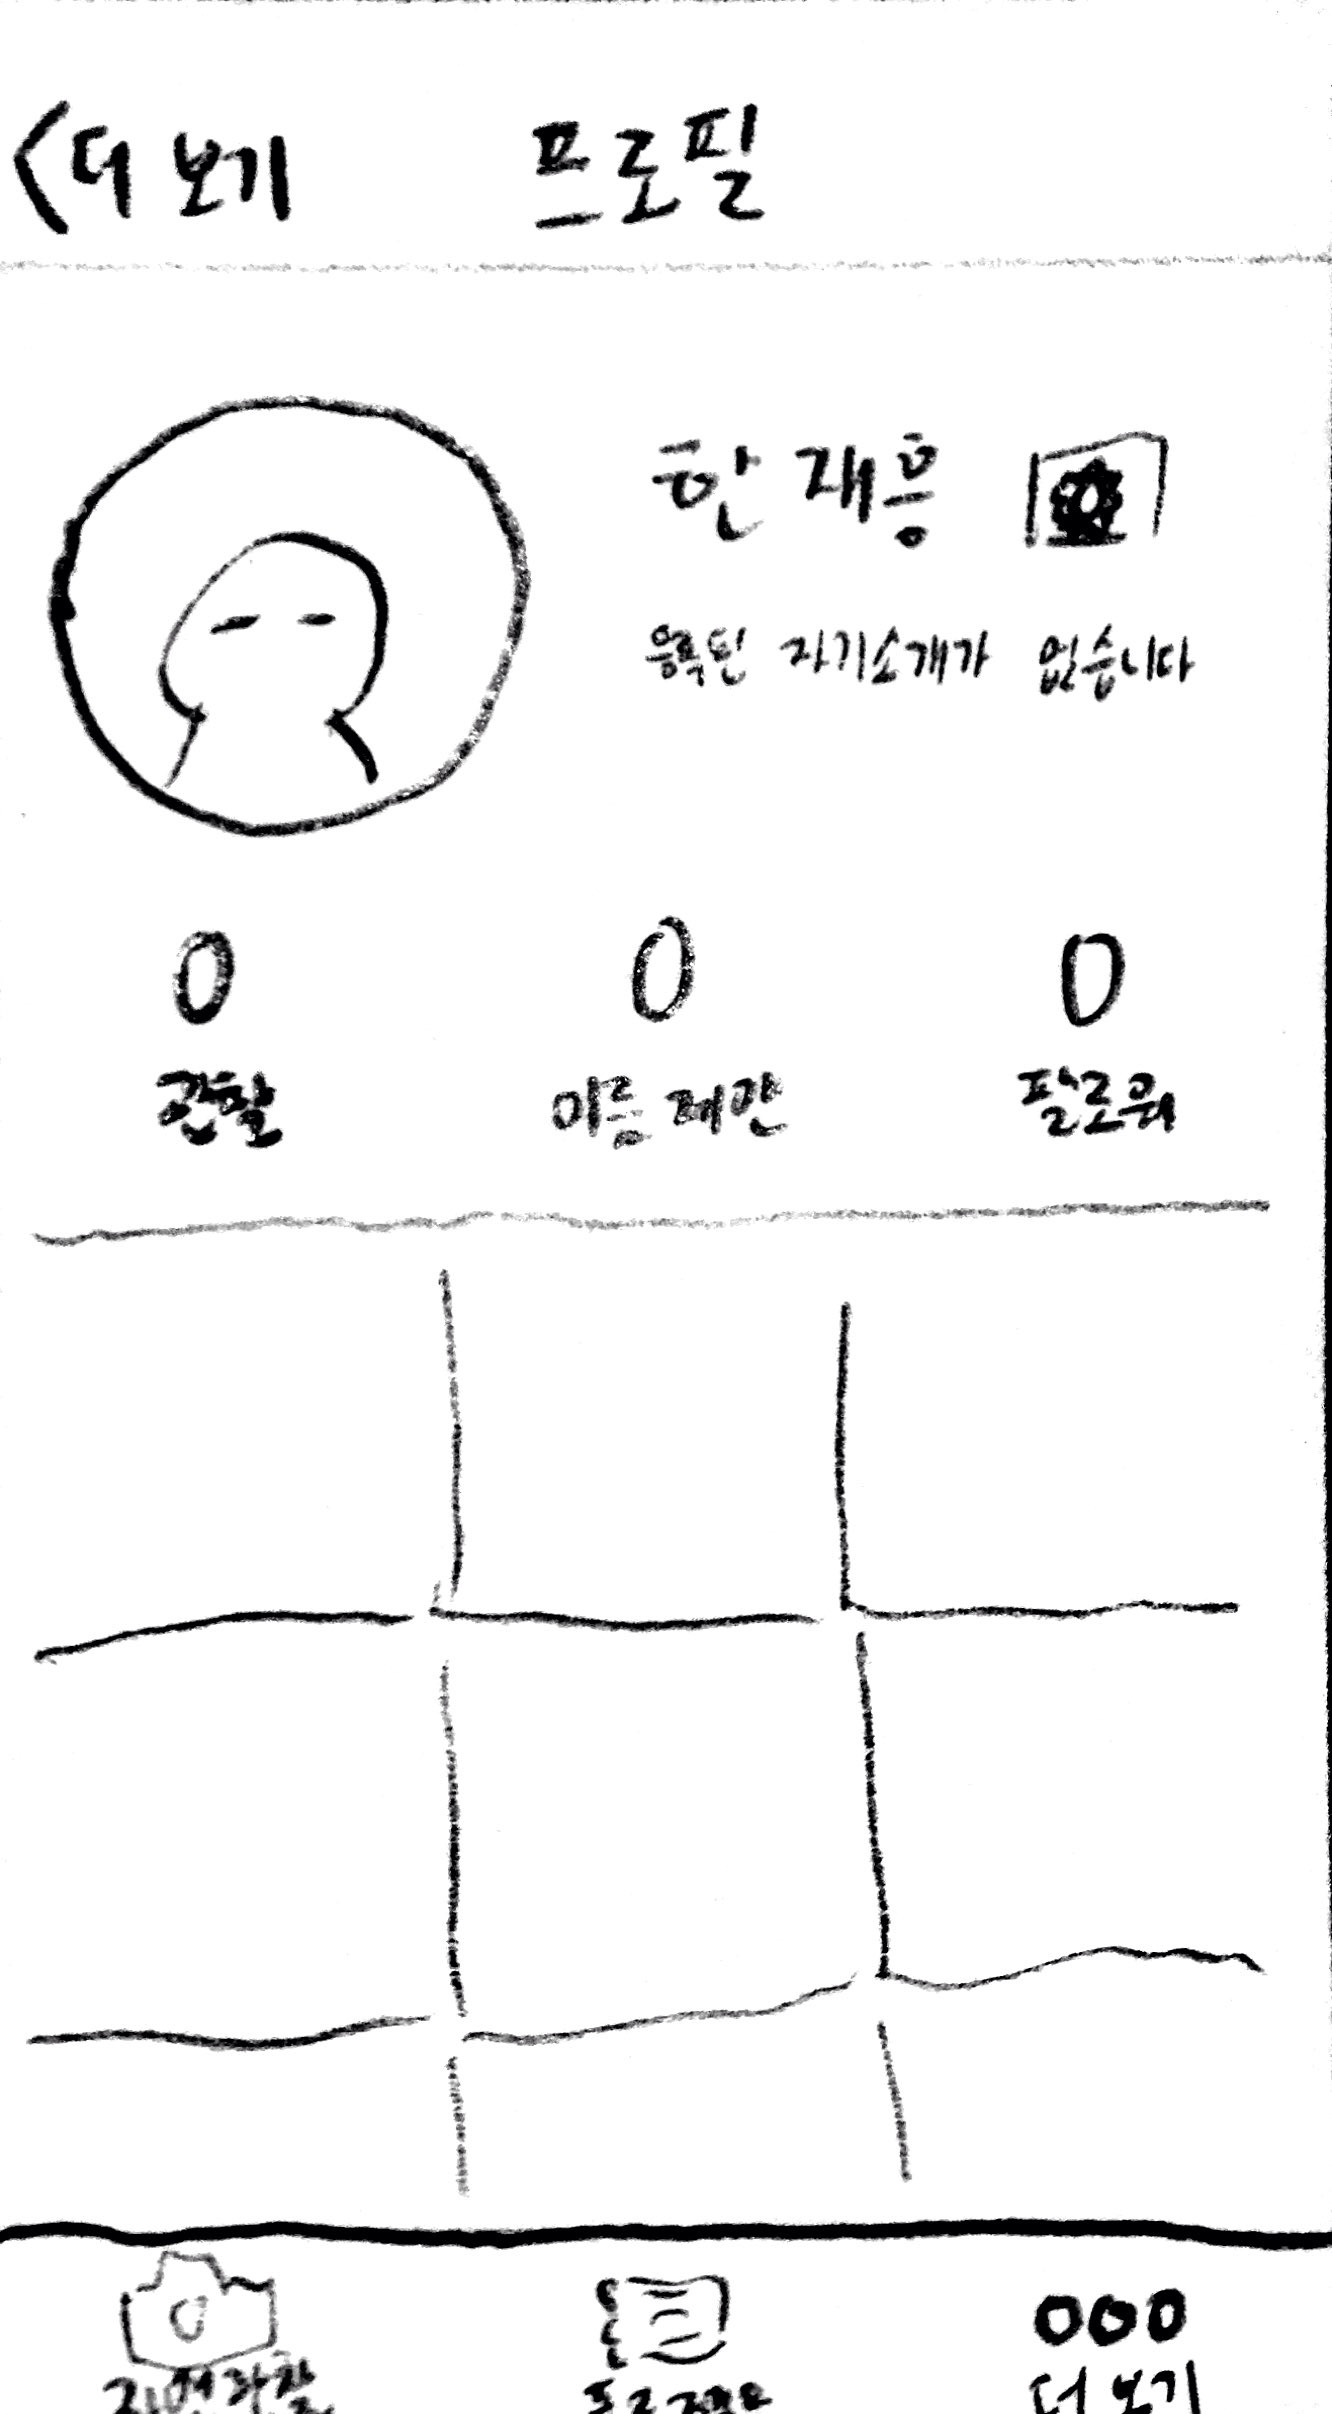 <더보기 프로필
한재흥
등록된 자기소개가 없습니다
0 0 0
관찰 이름제안 팔로워
자연관찰 프로젝트 더보기